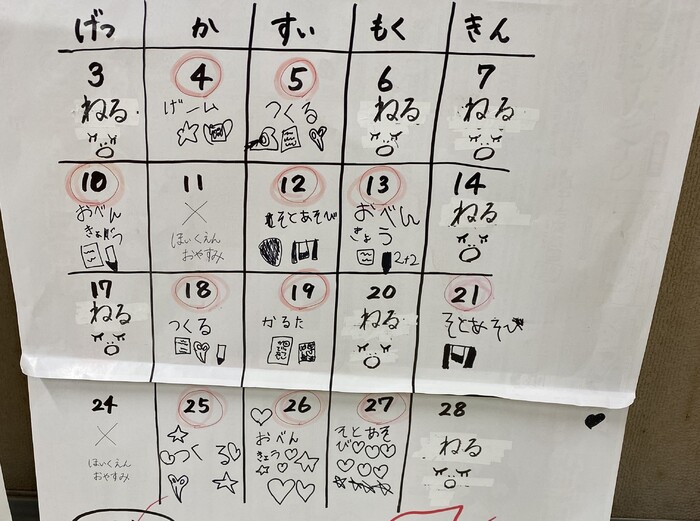 げつ か すい もく きん
3 4 5 6 7
ねる げーム つくる ねる ねる
10 11 12 13 14
おべん ほいくえん そとあそび おべん ねる
きょう おやすみ きょう
2+2
17 18 19 20 21
ねる つくる かるた ねる そとあそび
24 25 26 27 28
ほいくえん つくる おべん そとあそ ねる
おやすみ きょう び